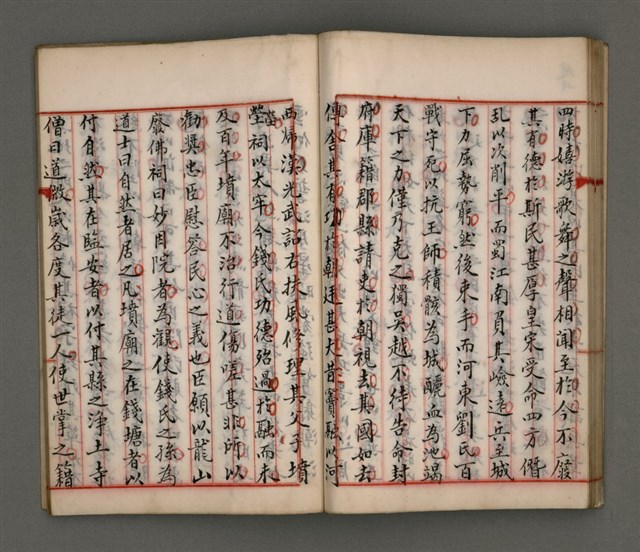 四時嬉游歌舞之聲相聞至於今不廢
其有德於斯民甚厚皇宋受命四方僭
亂以次削平而蜀江南負其嶮遠兵至城
下力屈勢窮然後束手而河東劉氏百
戰守死以抗王師積骸為城釃血為池竭
天下之力僅乃克之獨吴越不待告命封
府庫籍郡縣請吏於朝視去其國如去
傳舍其有功於朝廷甚大昔竇融以河
西歸漢光武詔右扶風修理其父子墳
塋祠以太牢今錢氏功德殆過於融而未
及百年墳廟不治行道傷嗟甚非所以
勸奬忠臣慰答民心之義也臣願以龍山
廢佛祠曰妙因院者為觀使錢氏之孫為
道士曰自然者居之凡墳廟之在錢塘者以
付自然其在臨安者以付其縣之淨土寺
僧曰道微歲各度其徒一人使世掌之籍